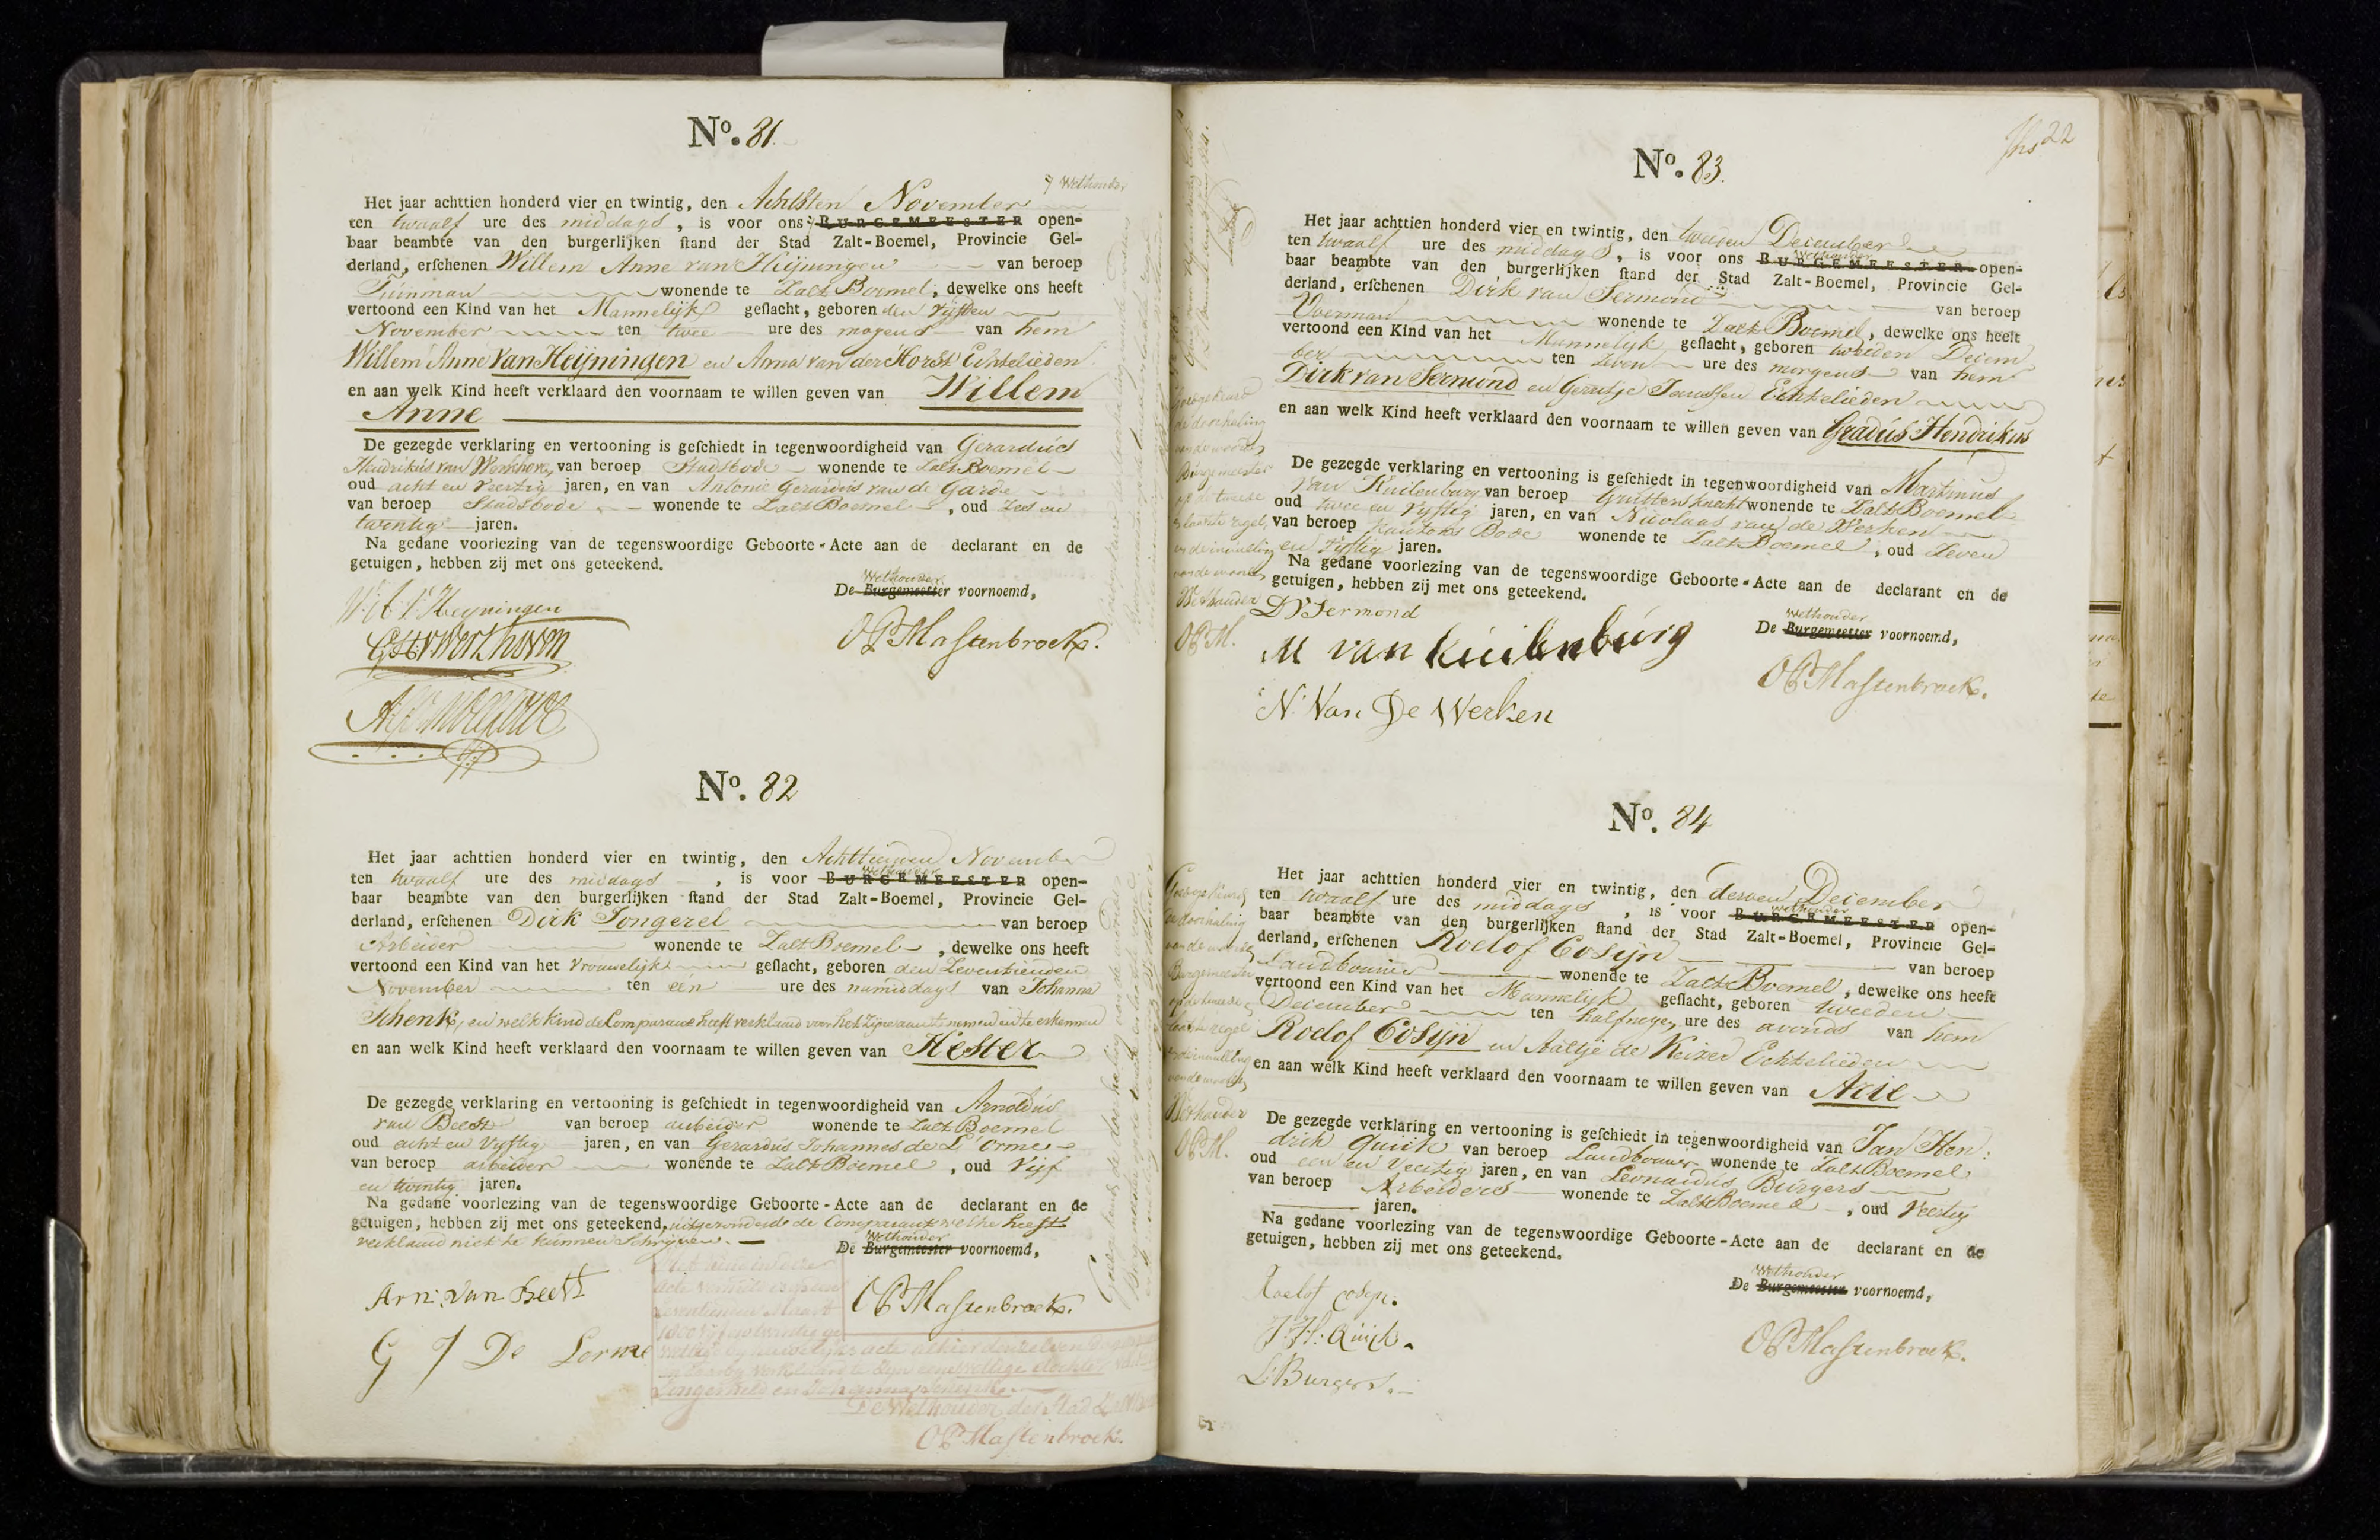 No. 81.
Wethouder
Het jaar achttien honderd vier en twintig, den Achtsten November
ten twaalf ure des middags, is voor ons BURGEMEESTER open-
baar beambte van den burgerlijken stand der Stad Zalt-Boemel, Provincie Gel-
derland, erschenen Willem Anne van Heijningen van beroep
Tuinman wonende te Zalt Boemel, dewelke ons heeft
vertoond een Kind van het Mannelijk geslacht, geboren den vijfden
November ten twee ure des morgens van hem
Willem Anne van Heijningen en Anna van der Horst Echtelieden
en aan welk Kind heeft verklaard den voornaam te willen geven van Willem
Anne
De gezegde verklaring en vertooning is geschiedt in tegenwoordigheid van Gerardus
Hendrikus van Werkhoven van beroep Stadsbode wonende te Zalt Boemel
oud acht en veertig jaren, en van Antonie Gerardus van de Garde
van beroep Stadsbode wonende te Zalt Boemel, oud Zes en
twentig jaren.
Na gedane voorlezing van de tegenswoordige Geboorte-Acte aan de declarant en de
getuigen, hebben zij met ons geteekend.
Wethouder
De Burgemeester voornoemd,
W: A: V: Heyningen
OP Mastenbroek.
No. 82
Het jaar achttien honderd vier en twintig, den Achttienden November
ten twaalf ure des middags, is voor BURGEMEESTER open-
Wethouder
baar beambte van den burgerlijken stand der Stad Zalt-Boemel, Provincie Gel-
derland, erschenen Dirk Tongerel van beroep
Arbeider wonende te Zalt Boemel, dewelke ons heeft
vertoond een Kind van het vrouwelijk geslacht, geboren den Zeventienden
November ten een ure des namiddags van Johanna
Schenk, en welk kind de Comparant heeft verklaard voor het zijne aan te nemen en te erkennen
en aan welk Kind heeft verklaard den voornaam te willen geven van Hester
De gezegde verklaring en vertooning is geschiedt in tegenwoordigheid van Arnoldus
van Beest van beroep arbeider wonende te Zalt Boemel
oud acht en vijftig jaren, en van Gerardus Johannes de L'orme
van beroep arbeider wonende te Zalt Boemel, oud Vijf
en twintig jaren.
Na gedane voorlezing van de tegenswoordige Geboorte-Acte aan de declarant en de
getuigen, hebben zij met ons geteekend, uitgezonderd de Comparant welke heeft
verklaard niet te kunnen Schrijven.
Wethouder
De Burgemeester voornoemd,
Arn: Van Beest
OP Mastenbroek.
G J De Lorme
De Wethouder der Stad
OP Mastenbroek.
22
No. 83.
Het jaar achttien honderd vier en twintig, den tweeden December
ten twaalf ure des middags, is voor ons BURGEMEESTER open-
Wethouder
baar beambte van den burgerlijken stand der Stad Zalt-Boemel, Provincie Gel-
derland, erschenen Dirk van Sermond van beroep
Voerman wonende te Zalt Boemel, dewelke ons heeft
vertoond een Kind van het Mannelijk geslacht, geboren tweeden Decem
ber ten zeven ure des morgens van hem
Dirk van Sermond en Gerritje Janssen Echtelieden
en aan welk Kind heeft verklaard den voornaam te willen geven van Gradus Hendrikus
De gezegde verklaring en vertooning is geschiedt in tegenwoordigheid van Martinus
van Kuilenburg van beroep Gruttersknecht wonende te Zalt Boemel
oud twee en vijftig jaren, en van Nicolaas van de Werken
van beroep Kantons Bode wonende te Zalt Boemel, oud zeven
en vijftig jaren.
Na gedane voorlezing van de tegenswoordige Geboorte-Acte aan de declarant en de
getuigen, hebben zij met ons geteekend.
Goedgekeurd
de doorhaling
van de woorden
Burgemeester
op de tweede
en laatste regel,
en de invulling
van de woorden
Wethouder
OP M.
Wethouder
De Burgemeester voornoemd,
D V Sermond
M van Kuilenburg
OP Mastenbroek.
N: Van De Werken
No. 84
Het jaar achttien honderd vier en twintig, den derden December
ten twaalf ure des middags, is voor BURGEMEESTER open-
Wethouder
baar beambte van den burgerlijken stand der Stad Zalt-Boemel, Provincie Gel-
derland, erschenen Roelof Cosijn van beroep
Landbouwer wonende te Zalt Boemel, dewelke ons heeft
vertoond een Kind van het Mannelijk geslacht, geboren tweeden
December ten half negen ure des avonds van hem
Roelof Cosijn en Aaltje de Keizer Echtelieden
en aan welk Kind heeft verklaard den voornaam te willen geven van Arie
De gezegde verklaring en vertooning is geschiedt in tegenwoordigheid van Jan Hen:
drik Quick van beroep Landbouwer wonende te Zalt Boemel
oud een en Veertig jaren, en van Leonardus Burgers
van beroep Arbeiders wonende te Zalt Boemel, oud Veertig
jaren.
Na gedane voorlezing van de tegenswoordige Geboorte-Acte aan de declarant en de
getuigen, hebben zij met ons geteekend.
Goedgekeurd
de doorhaling
van de woorden
Burgemeester
op de tweede en
laatste regel
en de invulling
van de woorden
Wethouder
OP M.
Wethouder
De Burgemeester voornoemd,
Roelof Cosijn.
J: H: Quick.
OP Mastenbroek.
L: Burgers.